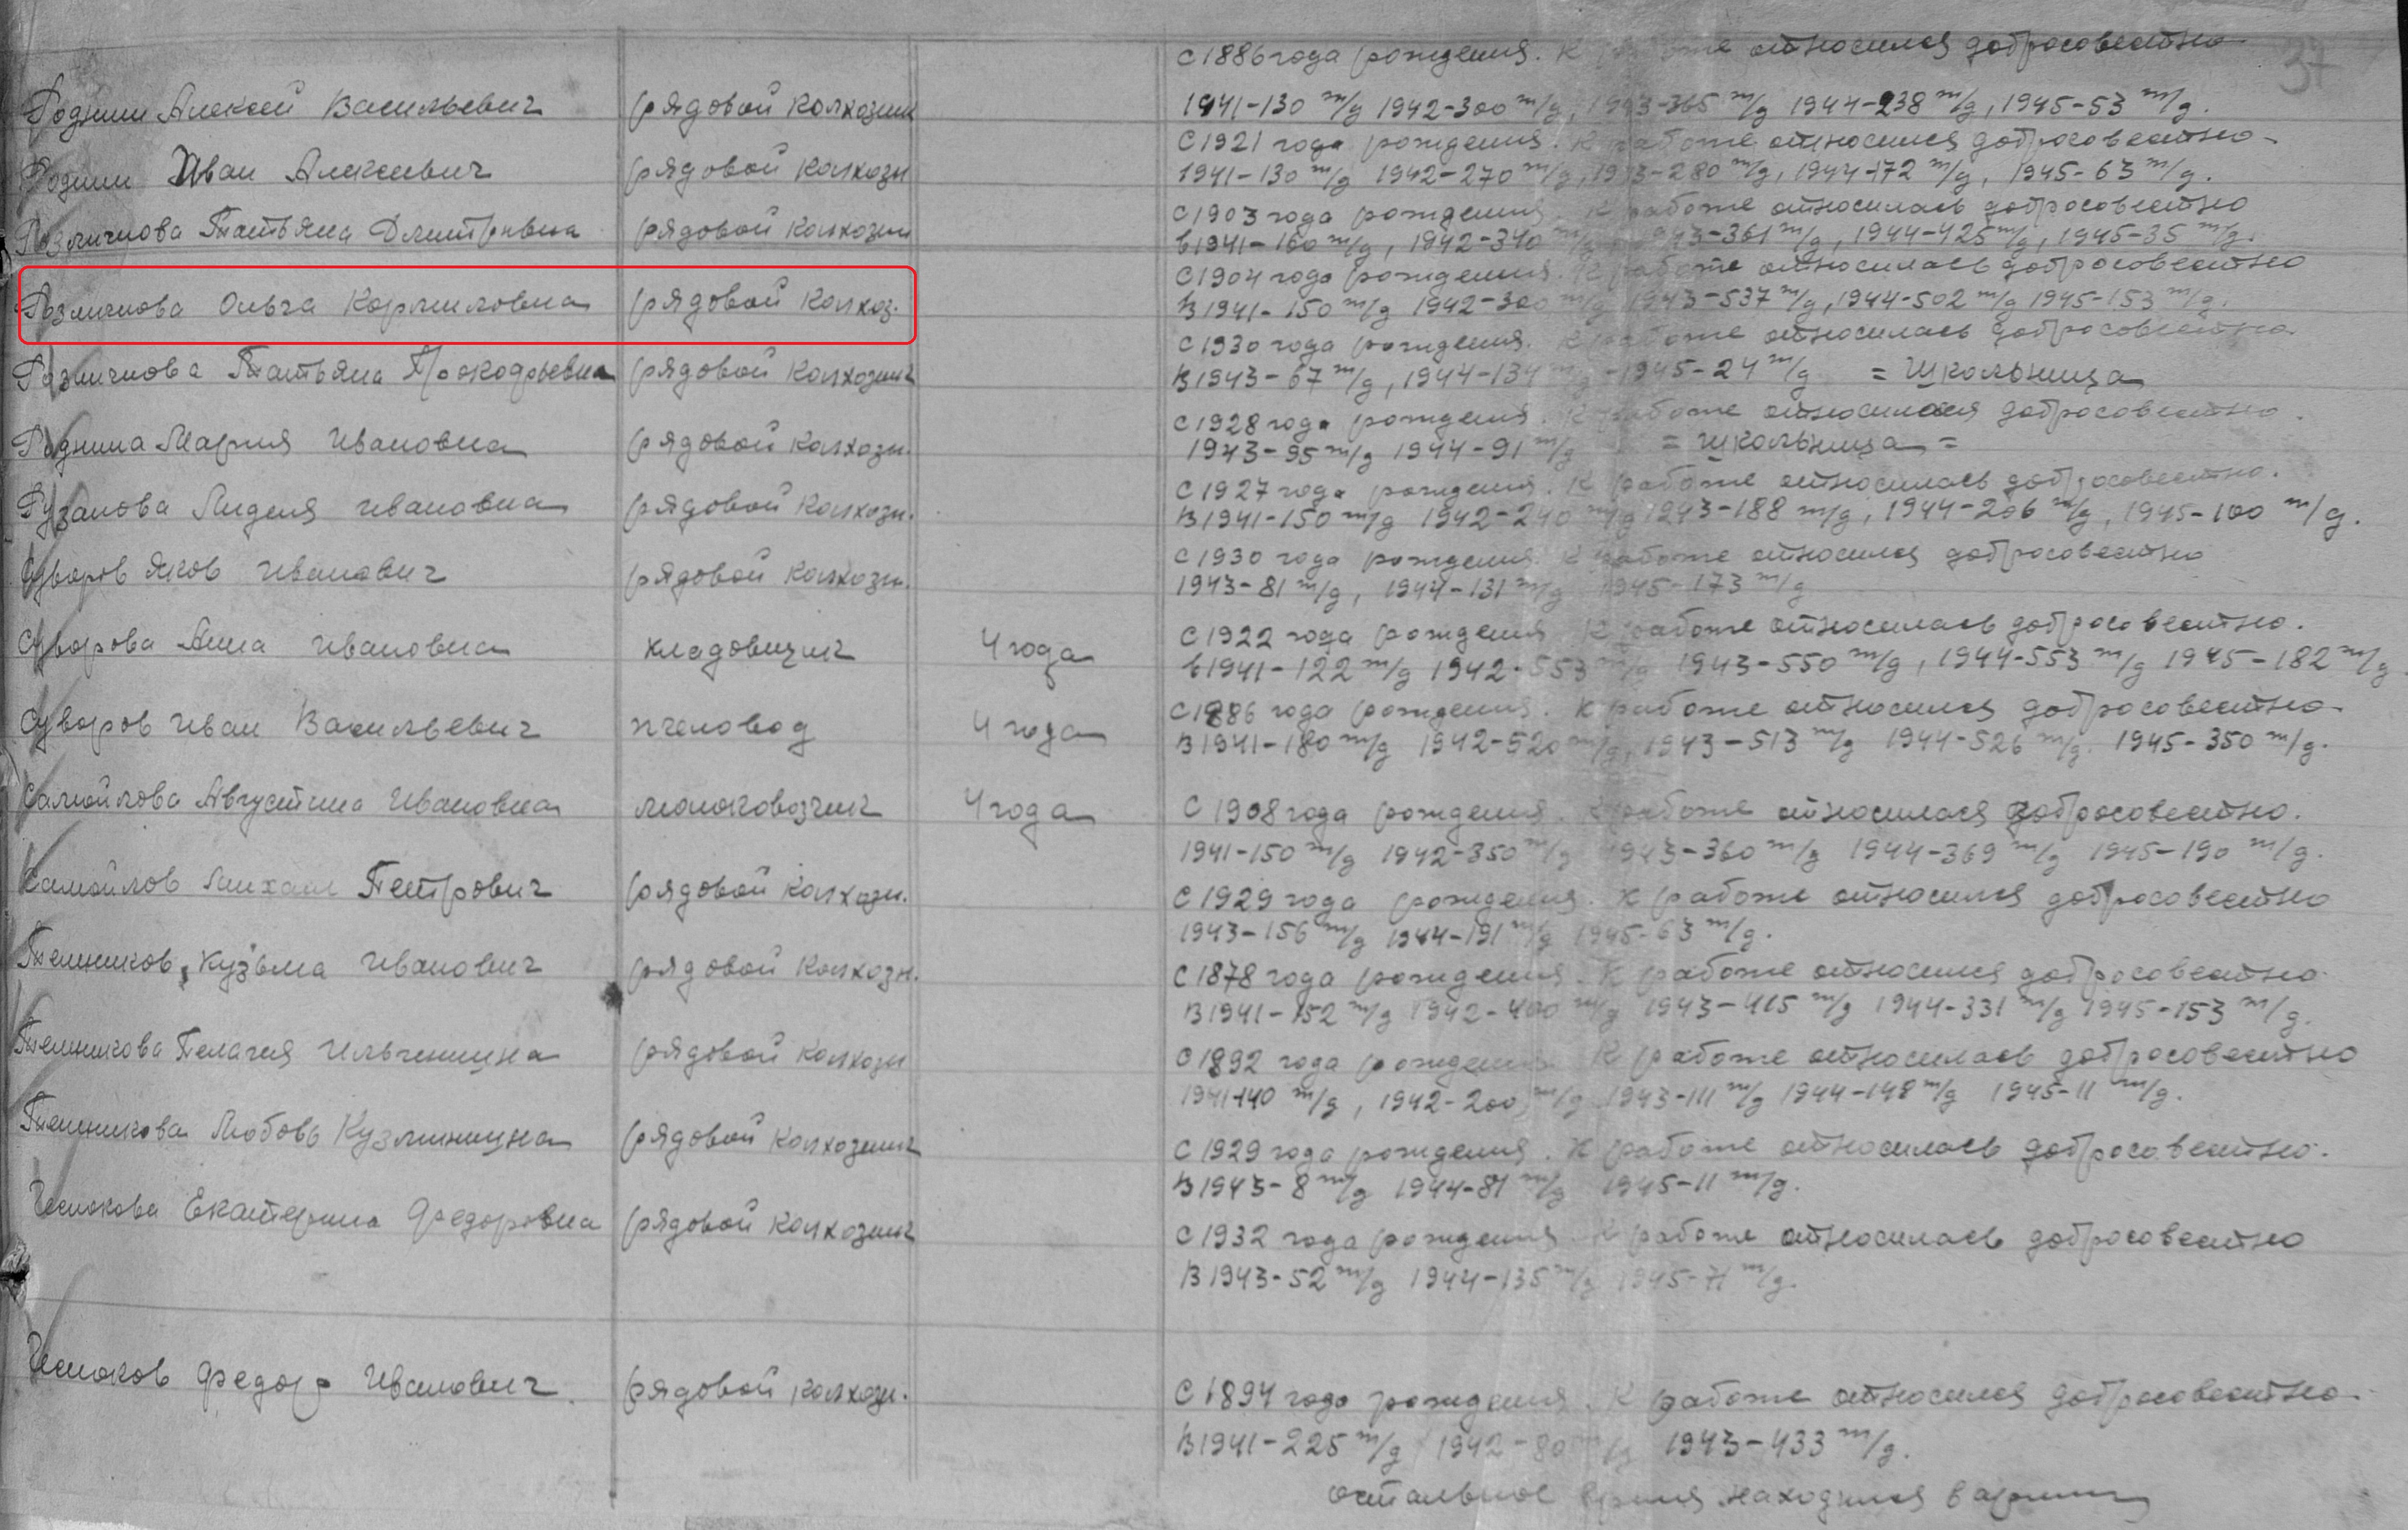 37
С 1886 года рождения. К работе относился добросовестно
Роднин Алексей Васильевич рядовой колхозник 1941-130 т/д 1942-300 т/д, 1943-365 т/д 1944-238 т/д, 1945-53 т/д.
С 1921 года рождения. К работе относился добросовестно
Роднин Иван Алексеевич рядовой колхозн 1941-130 т/д 1942-270 т/д, 1943-280 т/д, 1944-172 т/д, 1945-63 т/д.
С 1903 года рождения. К работе относилась добросовестно
Розличнова Татьяна Дмитривна рядовой колхозн в 1941-160 т/д, 1942-340 т/д 1943-361 т/д, 1944-425 т/д, 1945-35 т/д.
С 1904 года рождения. К работе относилась добросовестно
Розличнова Ольга Корниловна рядовой колхоз. В 1941-150 т/д 1942-300 т/д 1943-537 т/д, 1944-502 т/д 1945-153 т/д.
С 1930 года рождения. К работе относилась добросовестно.
Розличнова Татьяна Прокофьевна рядовой колхозник В 1943-67 т/д, 1944-134 т/д 1945-24 т/д = школьница
С 1928 года рождения. К работе относилася добросовестно.
Роднина Мария Ивановна рядовой колхозн. 1943-95 т/д 1944-91 т/д = школьница =
С 1927 года рождения. К работе относилась добросовестно.
Рузанова Лидия Ивановна рядовой колхозн. В 1941-150 т/д 1942-240 т/д 1943-188 т/д, 1944-206 т/д, 1945-100 т/д.
С 1930 года рождения. К работе относился добросовестно
Суворов Яков Иванович рядовой колхозн. 1943-81 т/д, 1944-131 т/д 1945-173 т/д
С 1922 года рождения К работе относилась добросовестно.
Суворова Анна Ивановна кладовщик 4 года в 1941-122 т/д 1942-553 т/д 1943-550 т/д, 1944-553 т/д 1945-182 т/д
С 1886 года рождения. К работе относился добросовестно
Суворов Иван Васильевич пчеловод 4 года В 1941-180 т/д 1942-520 т/д, 1943-513 т/д 1944-526 т/д. 1945-350 т/д.
Самойлова Августина Ивановна молоковозчик 4 года С 1908 года рождения. К работе относилася добросовестно.
1941-150 т/д 1942-350 т/д 1943-360 т/д 1944-369 т/д 1945-190 т/д.
Самойлов Михаил Петрович рядовой колхозн. С 1929 года рождения. К работе относился добросовестно
1943-156 т/д 1944-191 т/д 1945-63 т/д.
Телников Кузьма Иванович рядовой колхозн. С 1878 года рождения. К работе относился добросовестно
В 1941-152 т/д 1942-400 т/д 1943-415 т/д 1944-331 т/д 1945-153 т/д.
Телникова Пелагия Ильинишна рядовой колхозн С 1892 года рождения К работе относилась добросовестно
1941-140 т/д, 1942-200 т/д 1943-111 т/д 1944-148 т/д 1945-11 т/д.
Телникова Любовь Кузминишна рядовой колхозник С 1929 года рождения. К работе относилась добросовестно.
В 1943-8 т/д 1944-81 т/д 1945-11 т/д.
Чеснокова Екатерина Федоровна рядовой колхозник С 1932 года рождения К работе относилась добросовестно
В 1943-52 т/д 1944-135 т/д 1945-71 т/д.
Чесноков Федор Иванович рядовой колхозн. С 1894 года рождения. К работе относился добросовестно.
В 1941-225 т/д 1942-80 т/д 1943-433 т/д.
остальное время находился в армии